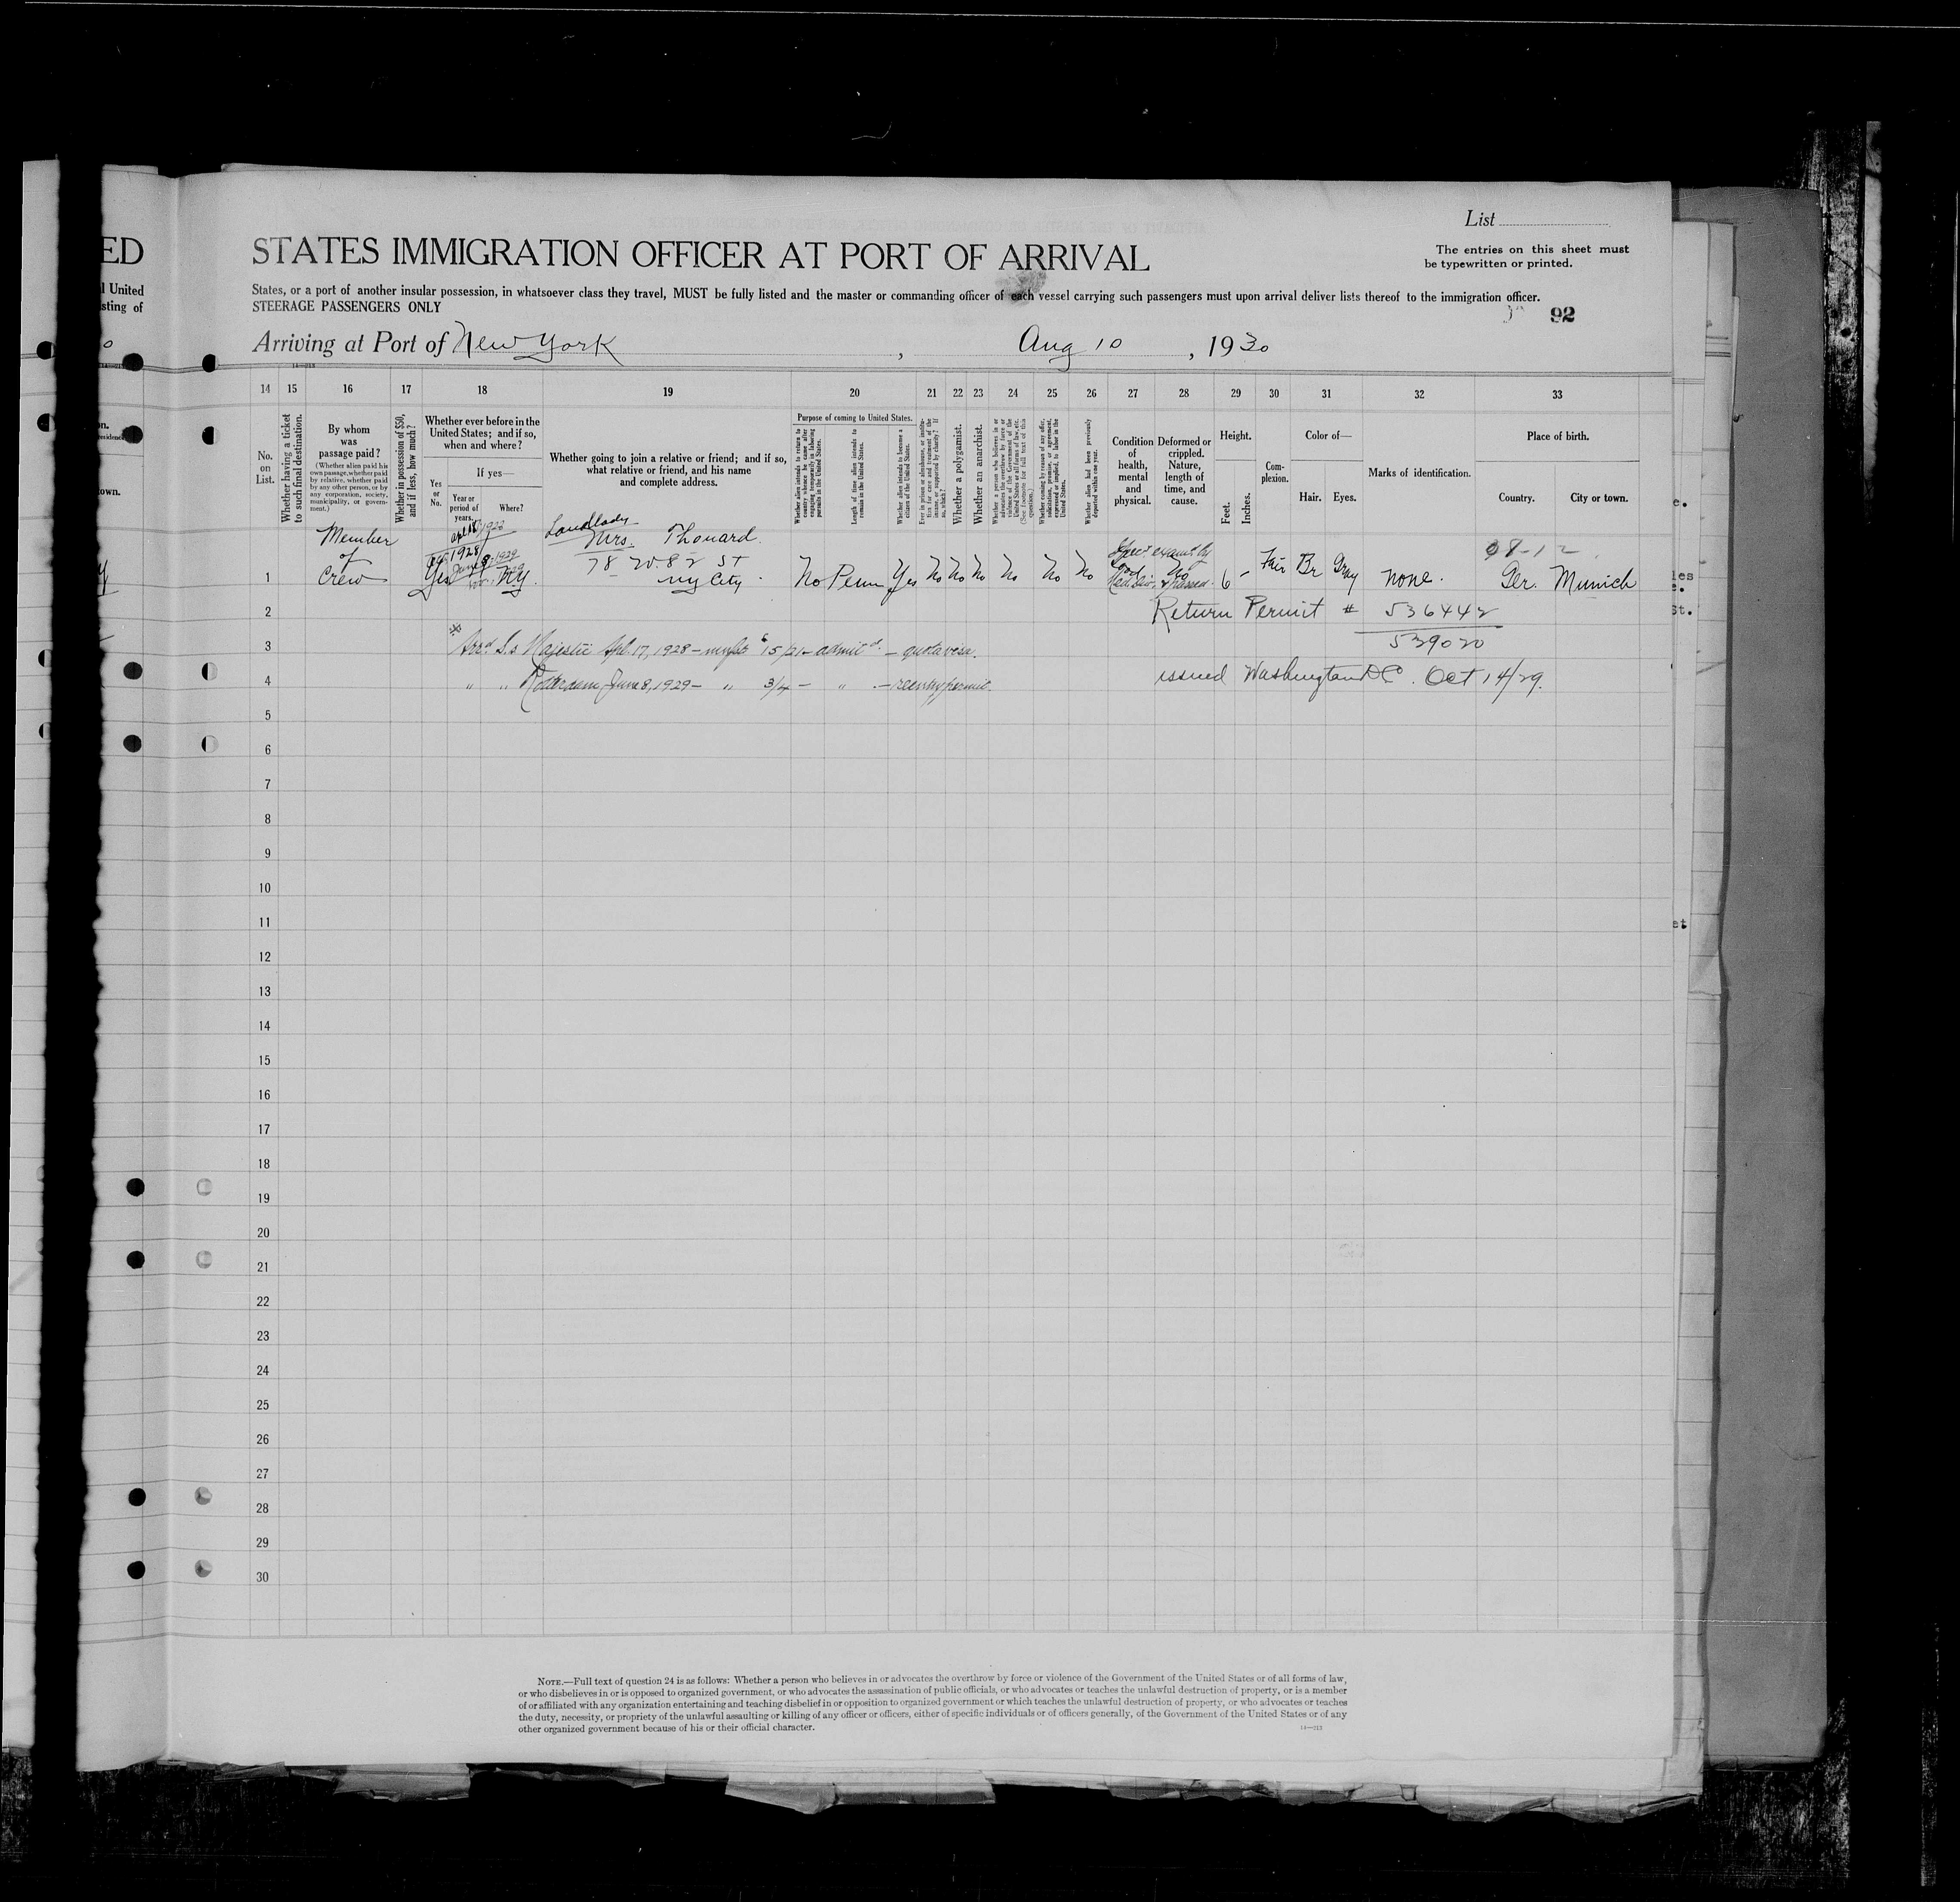 ED
l United
sting of
List
STATES IMMIGRATION OFFICER AT PORT OF ARRIVAL
The entries on this sheet must
be typewritten or printed.
States, or a port of another insular possession, in whatsoever class they travel, MUST be fully listed and the master or commanding officer of each vessel carrying such passengers must upon arrival deliver lists thereof to the immigration officer.
STEERAGE PASSENGERS ONLY
92
Arriving at Port of New York, Aug 10, 1930
14 15 16 17 18 19 20 21 22 23 24 25 26 27 28 29 30 31 32 33
No. on List.
Whether having a ticket to such final destination.
By whom was passage paid?
(Whether alien paid his own passage, whether paid by relative, whether paid by any other person, or by any corporation, society, municipality, or government.)
Whether in possession of $50, and if less, how much?
Whether ever before in the United States; and if so, when and where?
Yes or No.
If yes—
Year or period of years.
Where?
Whether going to join a relative or friend; and if so, what relative or friend, and his name and complete address.
Purpose of coming to United States.
Whether alien intends to return to country whence he came after engaging temporarily in laboring pursuits in the United States.
Length of time alien intends to remain in the United States.
Whether alien intends to become a citizen of the United States.
Ever in prison or almshouse, or institution for care and treatment of the insane, or supported by charity? If so, which?
Whether a polygamist.
Whether an anarchist.
Whether a person who believes in or advocates the overthrow by force or violence of the Government of the United States or all forms of law, etc. (See footnote for full text of this question.)
Whether coming by reason of any offer, solicitation, promise, or agreement, expressed or implied, to labor in the United States.
Whether alien had been previously deported within one year.
Condition of health, mental and physical.
Deformed or crippled. Nature, length of time, and cause.
Height.
Feet.
Inches.
Complexion.
Color of—
Hair.
Eyes.
Marks of identification.
Place of birth.
Country.
City or town.
Member
of
Crew
Yes
1928
NY.
Landlady
Mrs. Thonard
78 W. 82 St
NY City
1 No Perm Yes No No No No No No
Good
No
6 - Fair Br Gray none. Ger. Munich
2 Return Permit # 536442
539020
3 Arrd. S.S Majestic Apl. 17, 1928 – 15/21 – admitd. – quota visa.
4 " " Rotterdam, June 8, 1929 – " 3/4 – " – reentry permit.
issued Washington DC. Oct 14/29.
5
6
7
8
9
10
11
12
13
14
15
16
17
18
19
20
21
22
23
24
25
26
27
28
29
30
NOTE.—Full text of question 24 is as follows: Whether a person who believes in or advocates the overthrow by force or violence of the Government of the United States or of all forms of law,
or who disbelieves in or is opposed to organized government, or who advocates the assassination of public officials, or who advocates or teaches the unlawful destruction of property, or is a member
of or affiliated with any organization entertaining and teaching disbelief in or opposition to organized government or which teaches the unlawful destruction of property, or who advocates or teaches
the duty, necessity, or propriety of the unlawful assaulting or killing of any officer or officers, either of specific individuals or of officers generally, of the Government of the United States or of any
other organized government because of his or their official character.
14—213